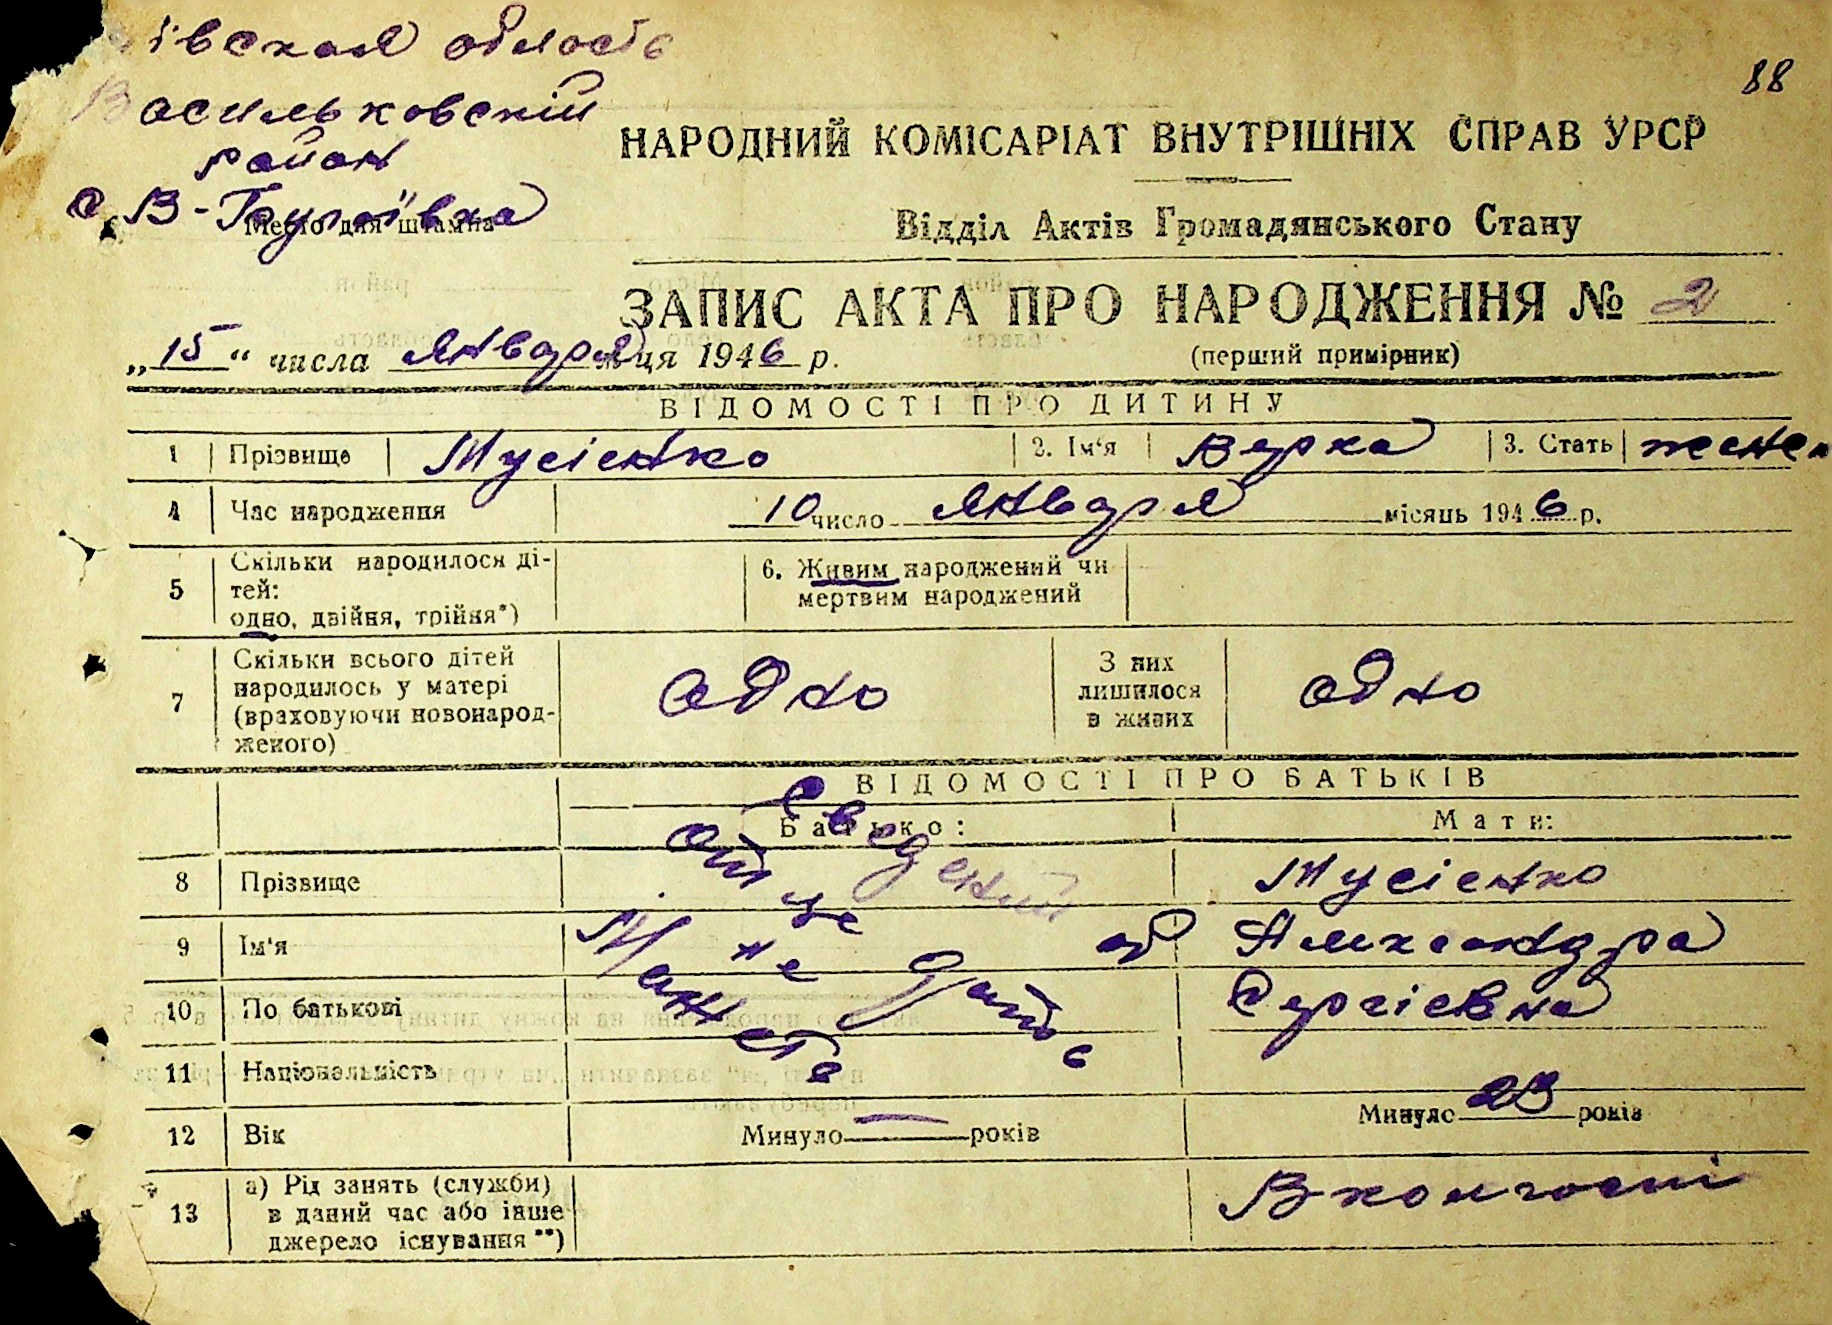 івская область
Васильковский
район
88
НАРОДНИЙ КОМІСАРІАТ ВНУТРІШНІХ СПРАВ УРСР
с. В-Бугаївка
Место для штампа
Відділ Актів Громадянського Стану
ЗАПИС АКТА ПРО НАРОДЖЕННЯ № 2
„15“ числа января м-ця 1946 р.
(перший примірник)
ВІДОМОСТІ ПРО ДИТИНУ
1 Прізвище Мусієнко 2. Ім‘я Верка 3. Стать женск
4 Час народження 10 число января місяць 1946 р.
5 Скільки народилося ді-
тей:
одно, двійня, трійня*)
6. Живим народжений чи
мертвим народжений
7 Скільки всього дітей
народилось у матері
(враховуючи новонарод-
женого)
одно
З них
лишилося
в живих
одно
ВІДОМОСТІ ПРО БАТЬКІВ
Батько: Мати:
8 Прізвище Мусієнко
9 Ім‘я Александра
10 По батькові Сергієвна
Сведений об
отце
не
может дать
11 Національність
12 Вік Минуло — років Минуло 23 років
13 а) Рід занять (служби)
в даний час або інше
джерело існування**)
В колгоспі